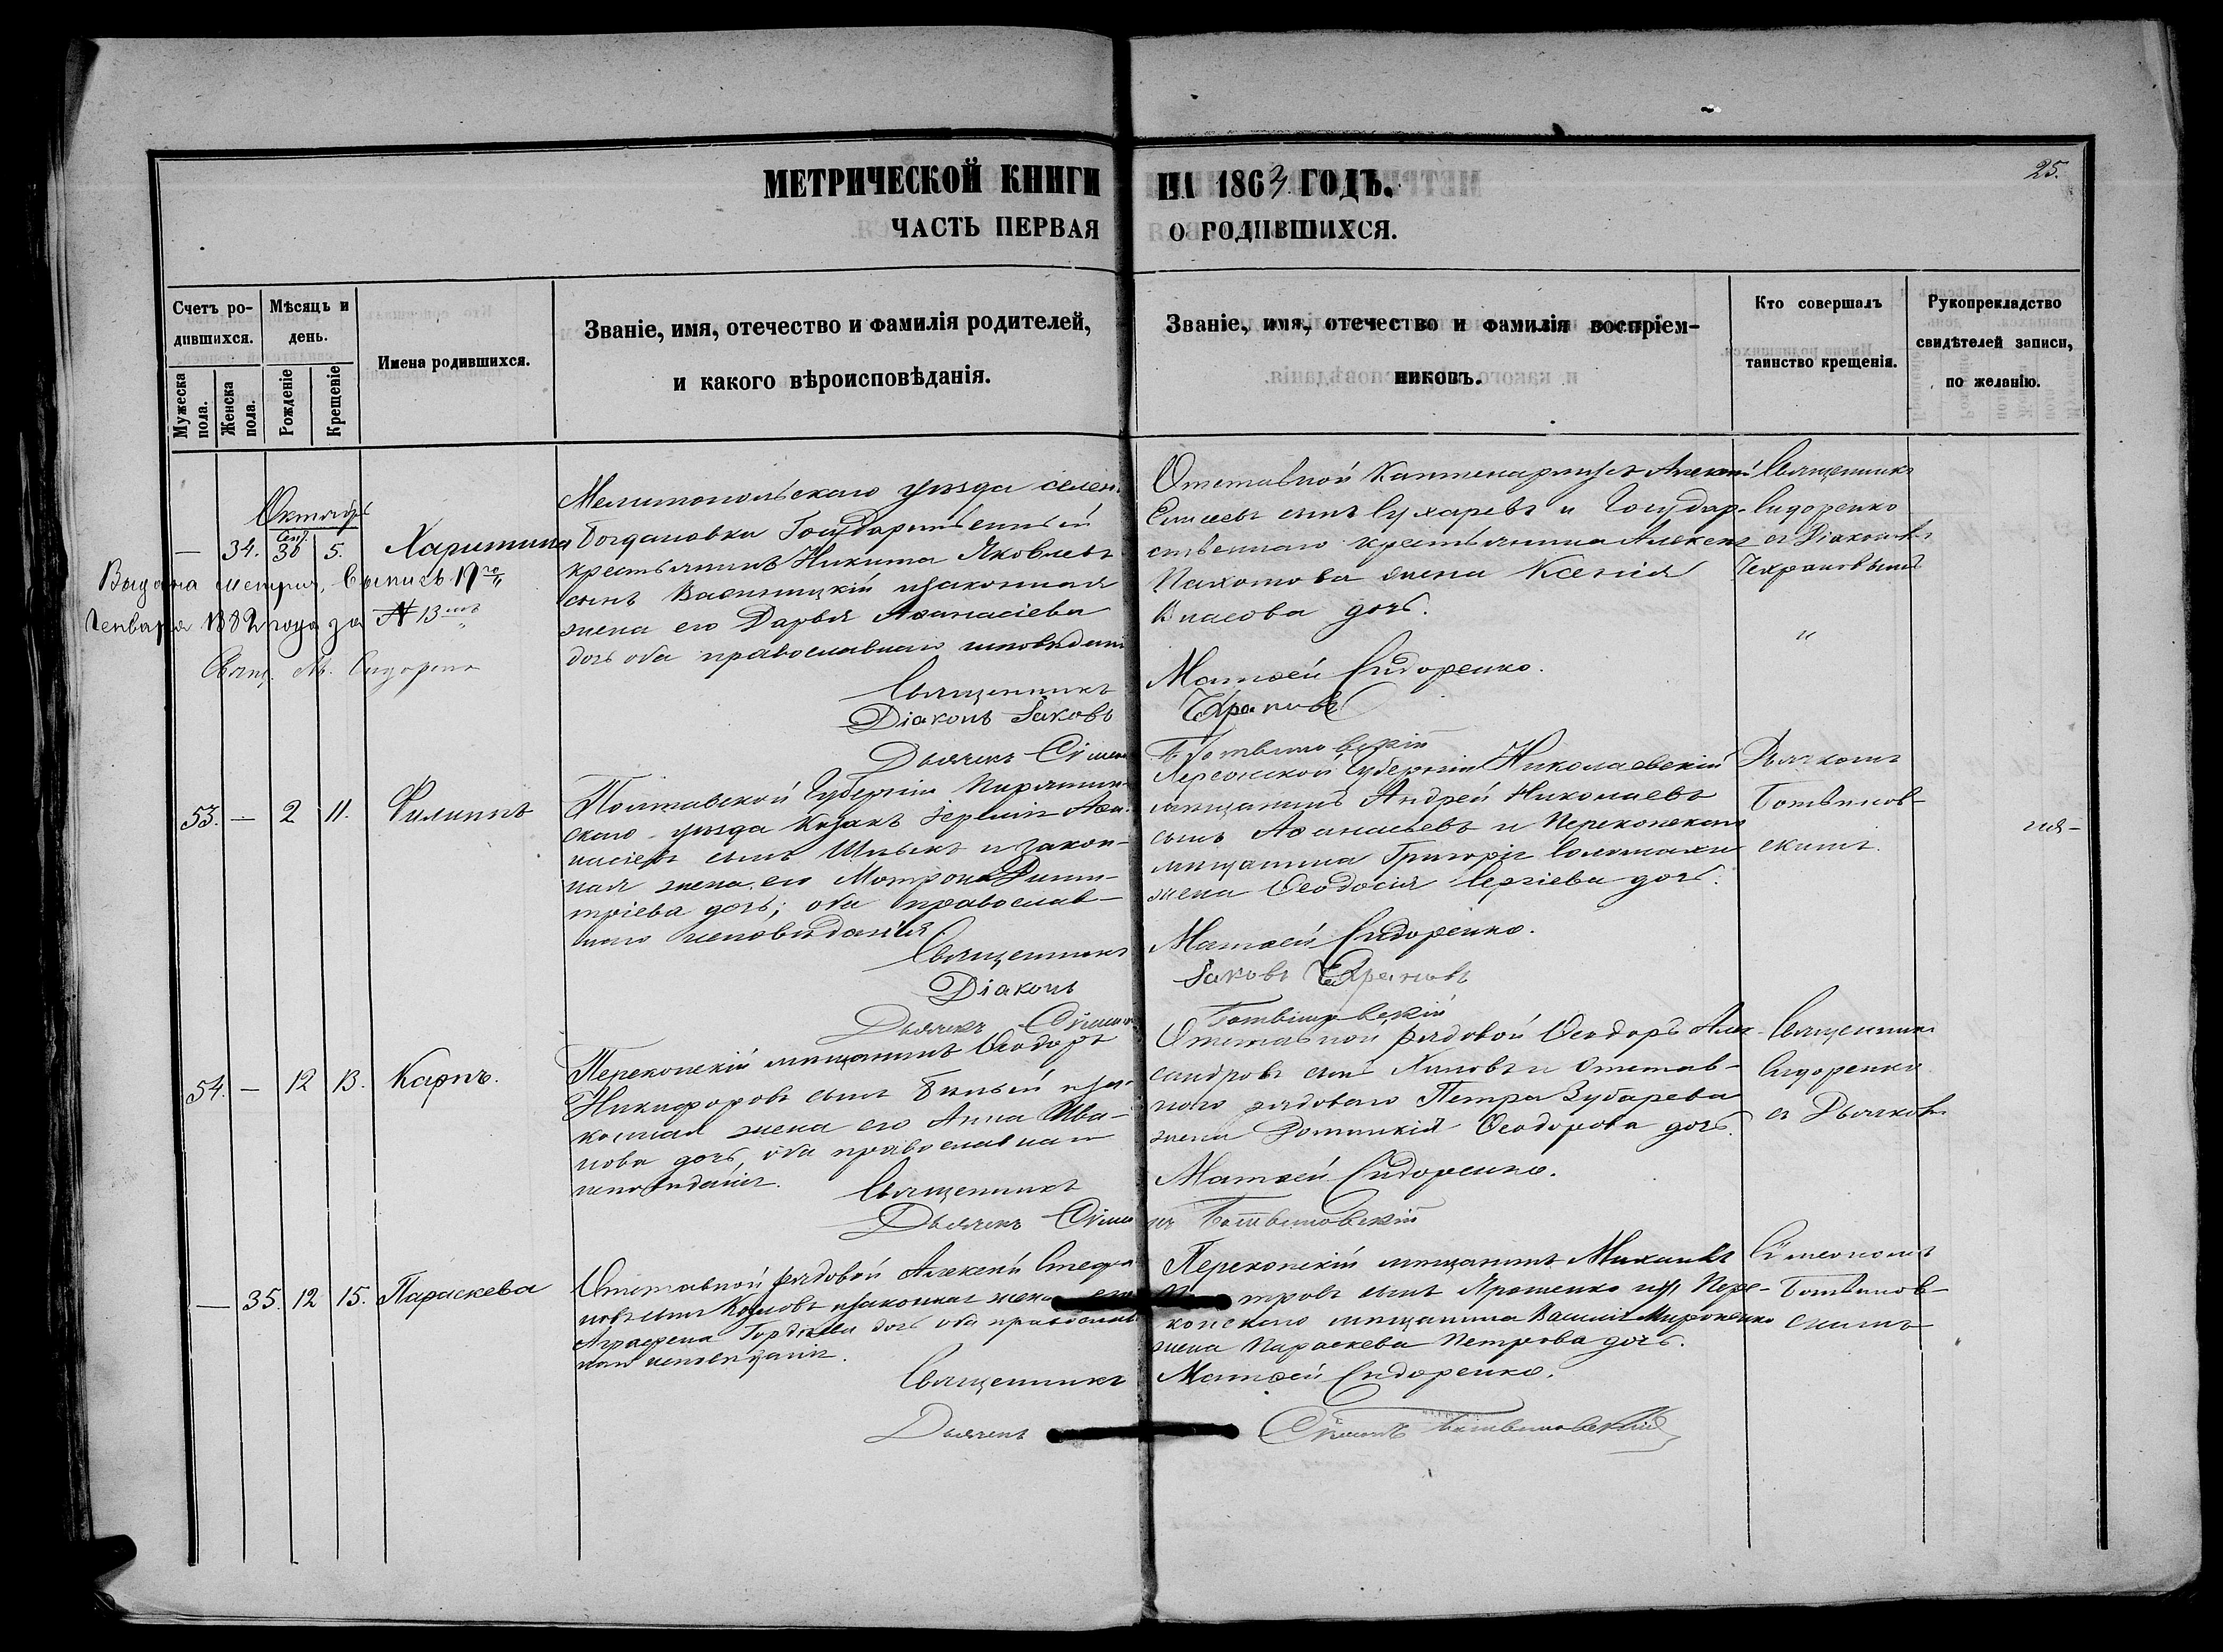 МЕТРИЧЕСКОЙ КНИГИ НА 1863 ГОДЪ.
25.
ЧАСТЬ ПЕРВАЯ О РОДИВШИХСЯ.
Счетъ ро-
дившихся.
Мужеска
пола.
Женска
пола.
Мѣсяцъ и
день.
Рожденіе
Крещеніе
Имена родившихся.
Званіе, имя, отечество и фамилія родителей,
и какого вѣроисповѣданія.
Званіе, имя, отечество и фамилія воспріем-
никовъ.
Кто совершалъ
таинство крещенія.
Рукоприкладство
свидѣтелей записи,
по желанію.
Октябрь
— 34. Сент. 30 5. Харитина
Выдана метрич. выпись 19го
Генваря 1882 года за № 13мъ
Свящ. М. Сидоренко
Мелитопольскаго уѣзда селен.
Богдановки Государственный
крестьянинъ Никита Яковлевъ
сынъ изаконная
жена его Дарья Афанасіева
дочь оба православнаго исповѣданія
Священникъ
Діаконъ Іаковъ
Дьячекъ Сѵмеонъ
Отставной Каптенармусъ Алексѣй
Елисеевъ сынъ Сухаревъ и Государ-
ственнаго крестьянина Алексея
Пахомова жена Ксенія
Власова дочь.
Матѳей Сидоренко.
Чехрановъ
Ботвиновскій
Священникъ
Сидоренко
съ Діакономъ
Чехрановымъ
"
53. — 2 11. Филиппъ
Полтавской Губерніи Пирятин-
скаго уѣзда Козакъ Іеремія Афа-
насіевъ сынъ и закон-
ная жена его Мотрона Дими-
тріева дочь; оба православ-
наго исповѣданія
Священникъ
Діаконъ
Дьячекъ Сѵмеонъ
Херсонской Губерніи Николаевскій
мѣщанинъ Андрей Николаевъ
сынъ Афанасьевъ и Перекопскаго
мѣщанина Григорія
жена Ѳеодосія Сергіева дочь.
Матѳей Сидоренко.
Іаковъ Чехрановъ
Ботвиновскій
Дьячкомъ
Ботвинов-
скимъ.
54. — 12 13. Карпъ.
Перекопскій мѣщанинъ Ѳеодоръ
Никифоровъ сынъ Бѣлый иза-
конная жена его Анна Ива-
нова дочь оба православнаго
исповѣданія.
Священникъ
Дьячекъ Сѵмео
Отставной рядовой Ѳеодоръ Алек-
сандровъ сынъ и Отстав-
наго рядоваго Петра Зубарева
жена Домникія Ѳеодорова дочь.
Матѳей Сидоренко.
нъ Ботвиновскій
Священникъ
Сидоренко
съ Дьячкомъ
— 35. 12 15. Параскева
Отставной рядовой Алексѣй Стефа
новъ сынъ Козловъ изаконная жена его
Агрофена Гордіева дочь оба православ
наго исповѣданія.
Священникъ
Дьячекъ
Перекопскій мѣщанинъ Михаилъ
тровъ сынъ Ярошенко Пере-
копскаго мѣщанина Василія Мироненко
жена Параскева Петрова дочь.
Матѳей Сидоренко.
Сѵмеонъ Ботвиновскій
Сѵмеономъ
Ботвинов-
скимъ